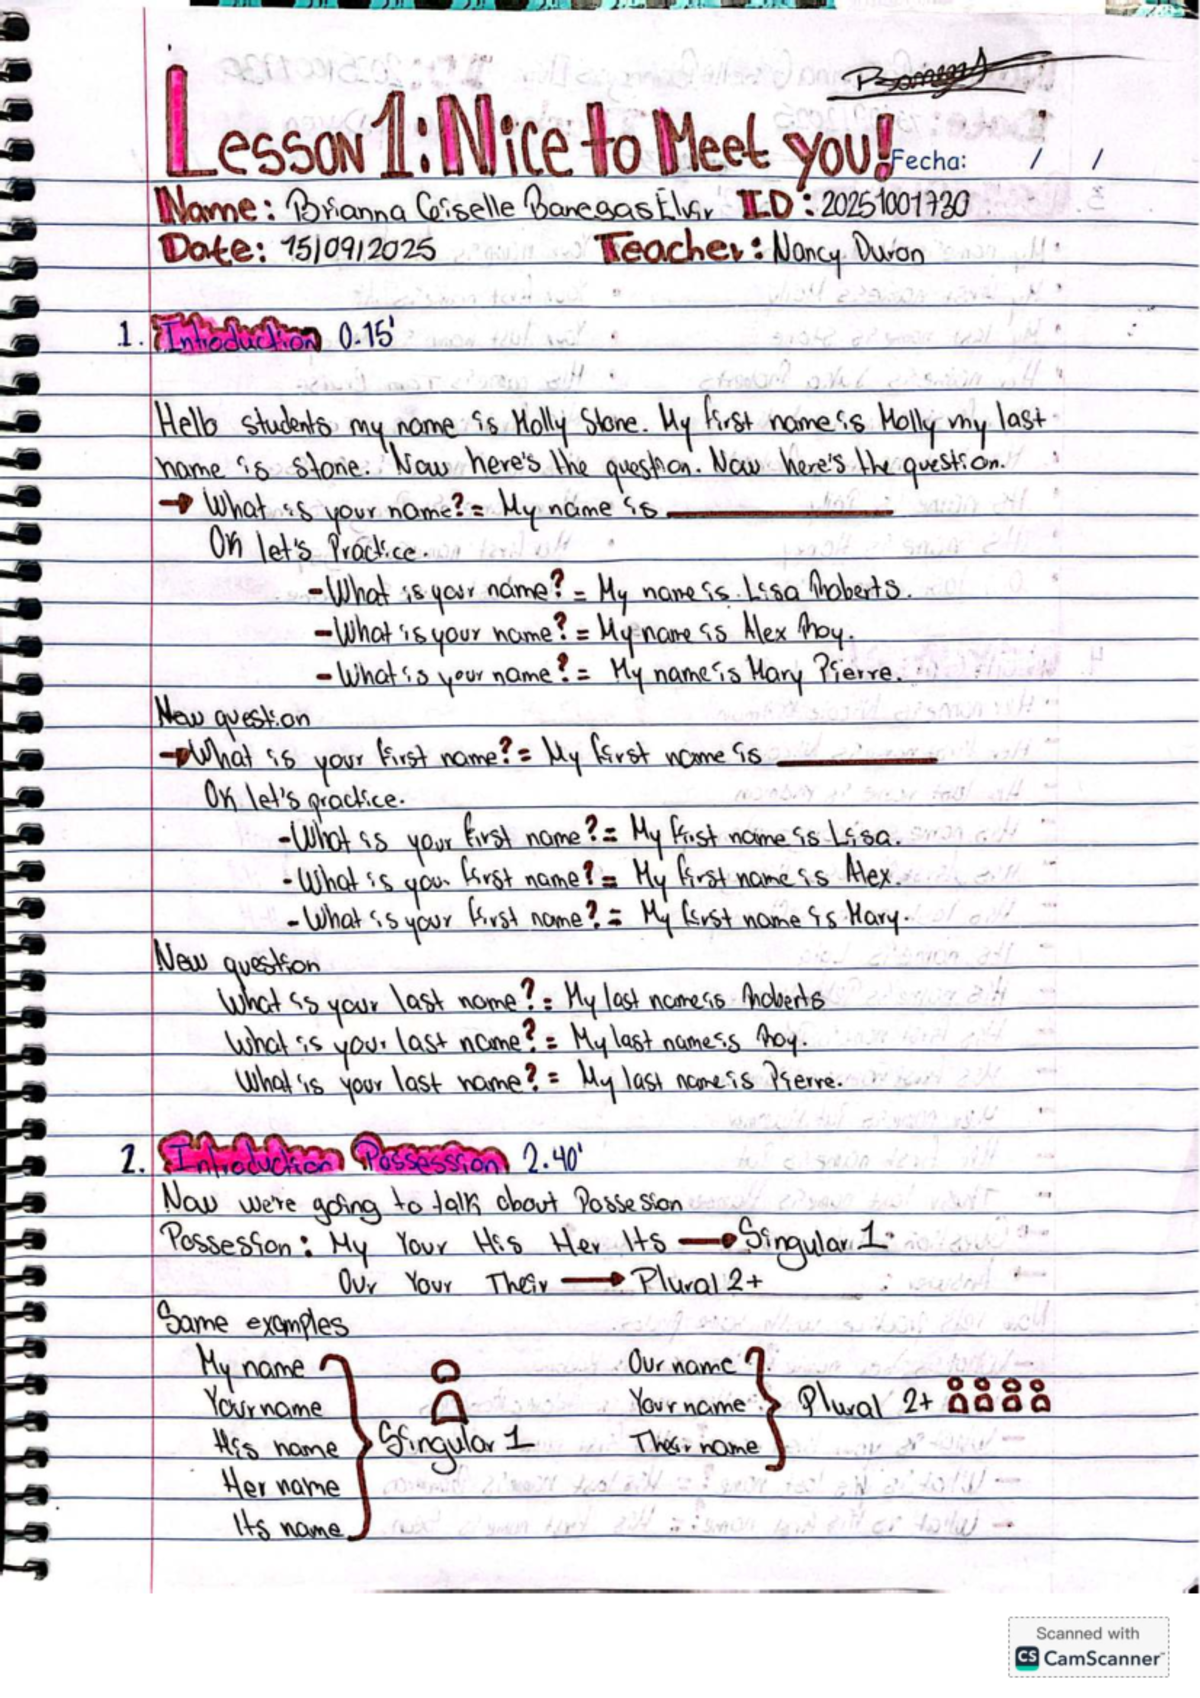 Lesson 1: Nice to Meet you!
Fecha: / /
Name: Brianna Giselle Banegas Elvir ID: 20251001730
Date: 15/09/2025 Teacher: Nancy Duron
1. Introduction 0.15'
Hello students my name is Molly Stone. My first name is Molly my last
name is Stone. Now here's the question. Now here's the question.
→ What is your name? = My name is ____________
Ok let's Practice.
- What is your name? = My name is Lisa Roberts.
- What is your name? = My name is Alex Roy.
- What is your name? = My name is Mary Pierre.
New question
→ What is your first name? = My first name is ____________
Ok let's practice.
- What is your first name? = My first name is Lisa.
- What is your first name? = My first name is Alex.
- What is your first name? = My first name is Mary.
New question
What is your last name? = My last name is Roberts
What is your last name? = My last name is Roy.
What is your last name? = My last name is Pierre.
2. Introduction Possession 2.40'
Now we're going to talk about Possession
Possession: My Your His Her Its → Singular 1.
Our Your Their → Plural 2+
Same examples
My name
Your name
His name
Her name
Its name
Singular 1
Our name
Your name
Their name
Plural 2+
Scanned with
CS CamScanner